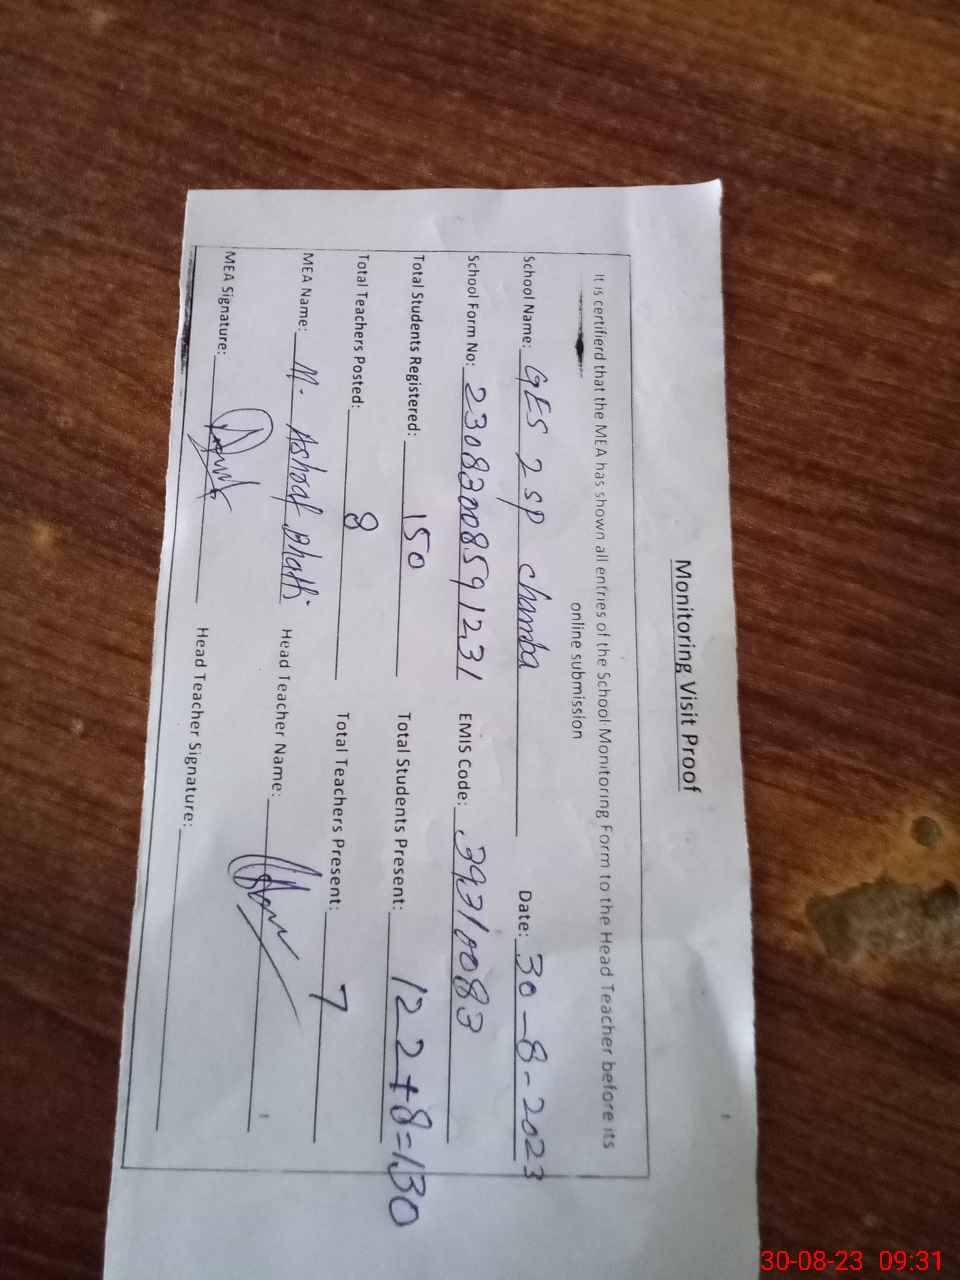 Monitoring Visit Proof
It is certifierd that the MEA has shown all entries of the School Monitoring Form to the Head Teacher before its
online submission
School Name: GES 2 SP chamba Date: 30-8-2023
School Form No: 23082008591231 EMIS Code: 39310083
Total Students Registered: 150 Total Students Present: 122+8=130
Total Teachers Posted: 8 Total Teachers Present: 7
MEA Name: M. Ashraf Bhatti Head Teacher Name:
MEA Signature: Head Teacher Signature:
30-08-23 09:31